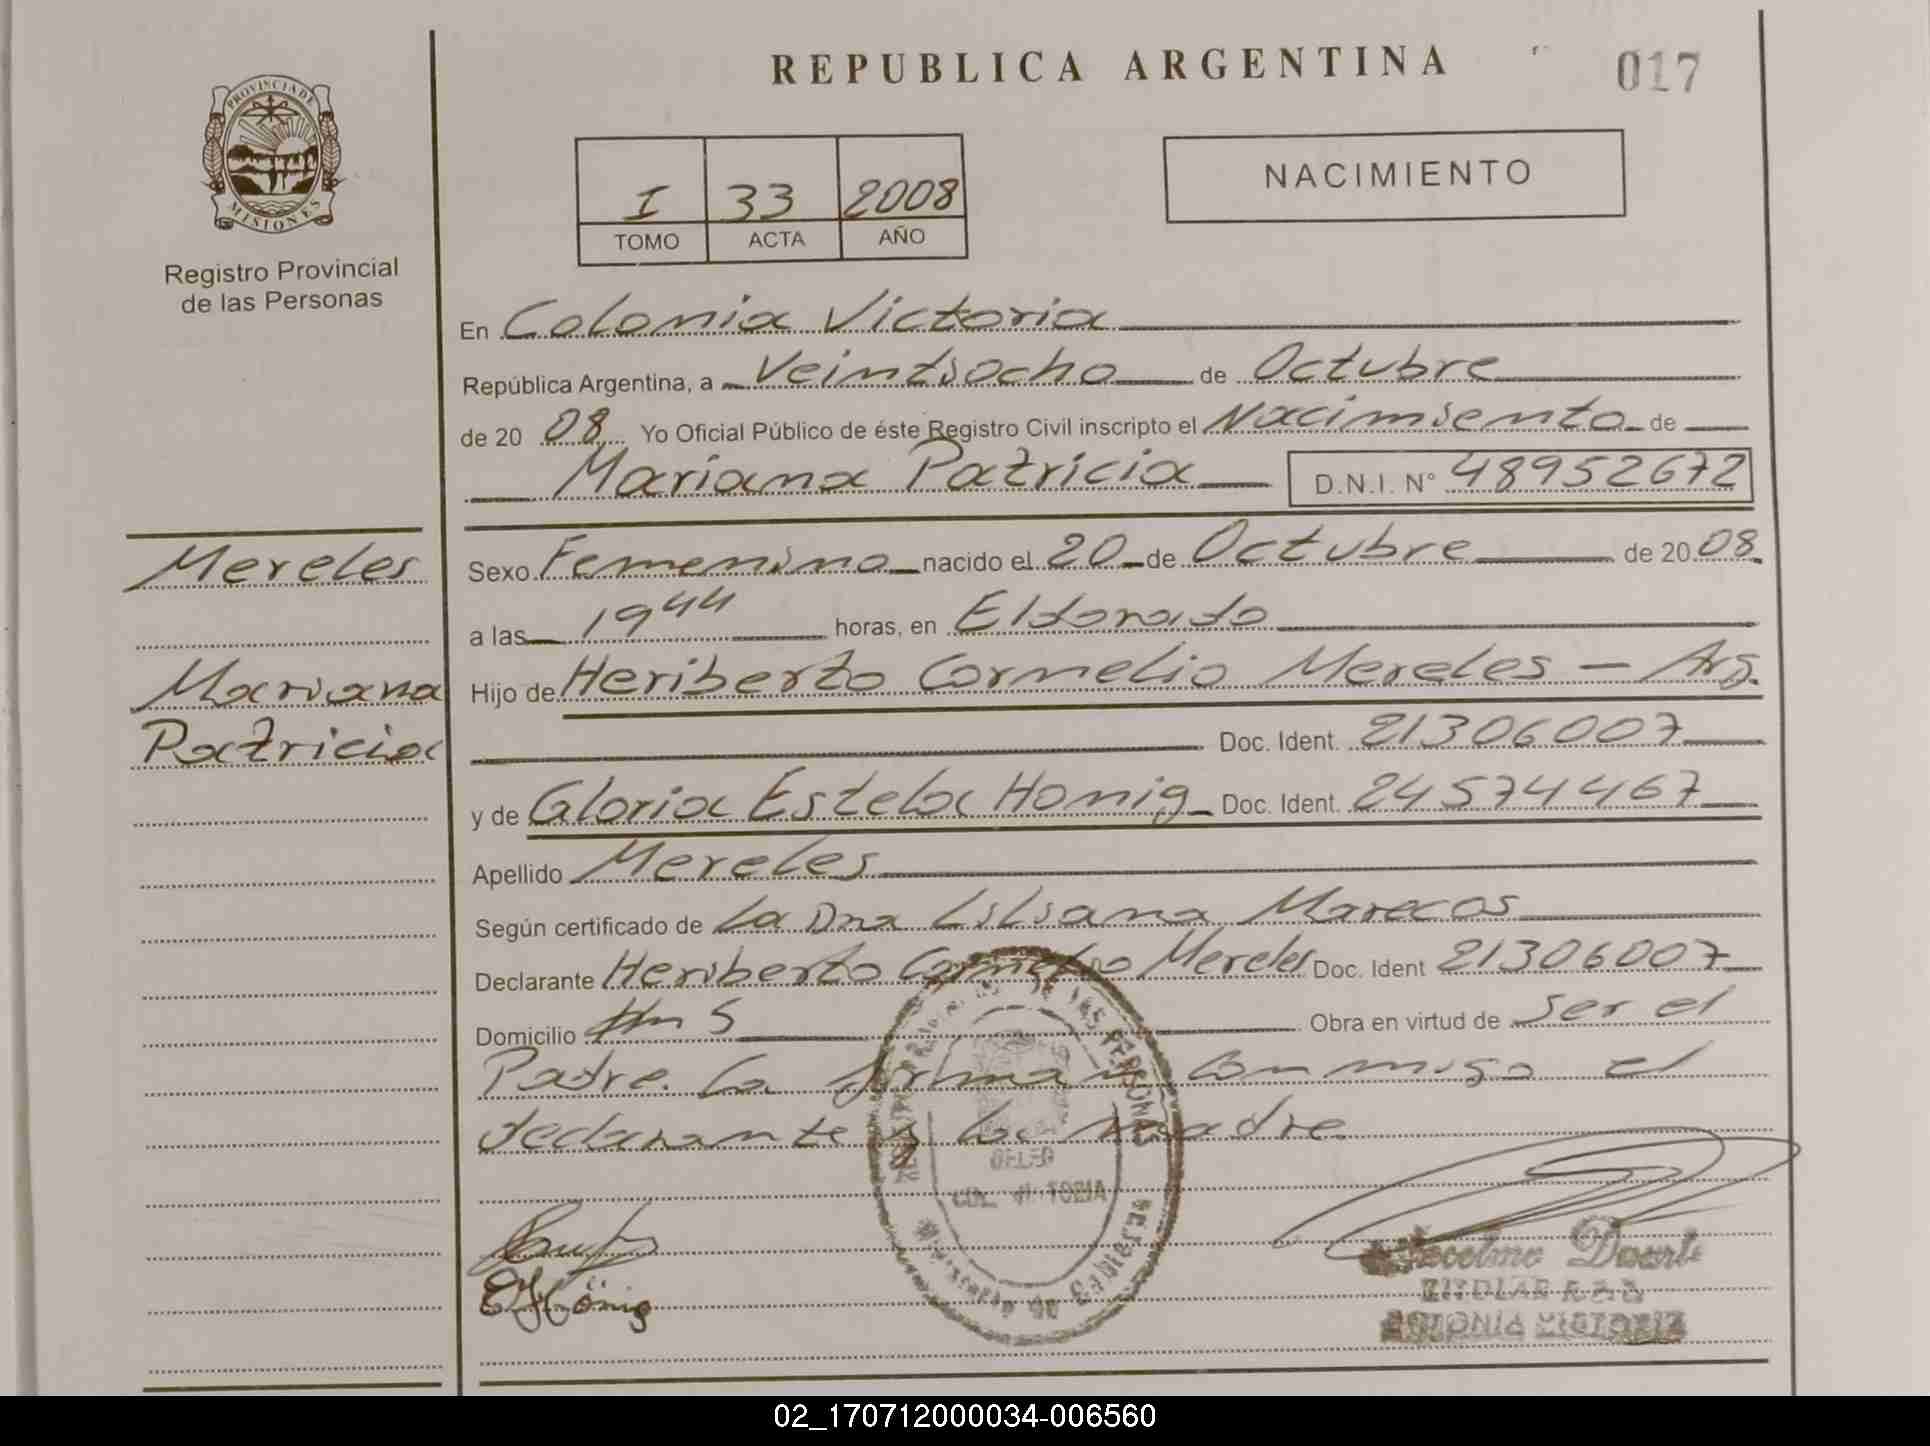 REPUBLICA ARGENTINA
017
PROVINCIA DE
MISIONES
Registro Provincial
de las Personas
I 33 2008
TOMO ACTA AÑO
NACIMIENTO
En Colonia Victoria
República Argentina, a Veintiocho de Octubre
de 20 08 Yo Oficial Público de éste Registro Civil inscripto el Nacimiento de
Mariana Patricia D.N.I. N° 48952672
Mereles
Mariana
Patricia
Sexo Femenino nacido el 20 de Octubre de 20 08
a las 19 44 horas, en Eldorado
Hijo de Heriberto Cornelio Mereles - Arg.
Doc. Ident. 21306007
y de Gloria Estela Honig Doc. Ident. 24574467
Apellido Mereles
Según certificado de La Dra Liliana Marecos
Declarante Heriberto Cornelio Mereles Doc. Ident 21306007
Domicilio Km 5 Obra en virtud de ser el
Padre. La firman conmigo el
declarante y la madre.
DE LAS PERSONAS
COL. VICTORIA
Ministerio de Gobierno
Hönig
Duarte
TITULAR
COLONIA VICTORIA
02_170712000034-006560